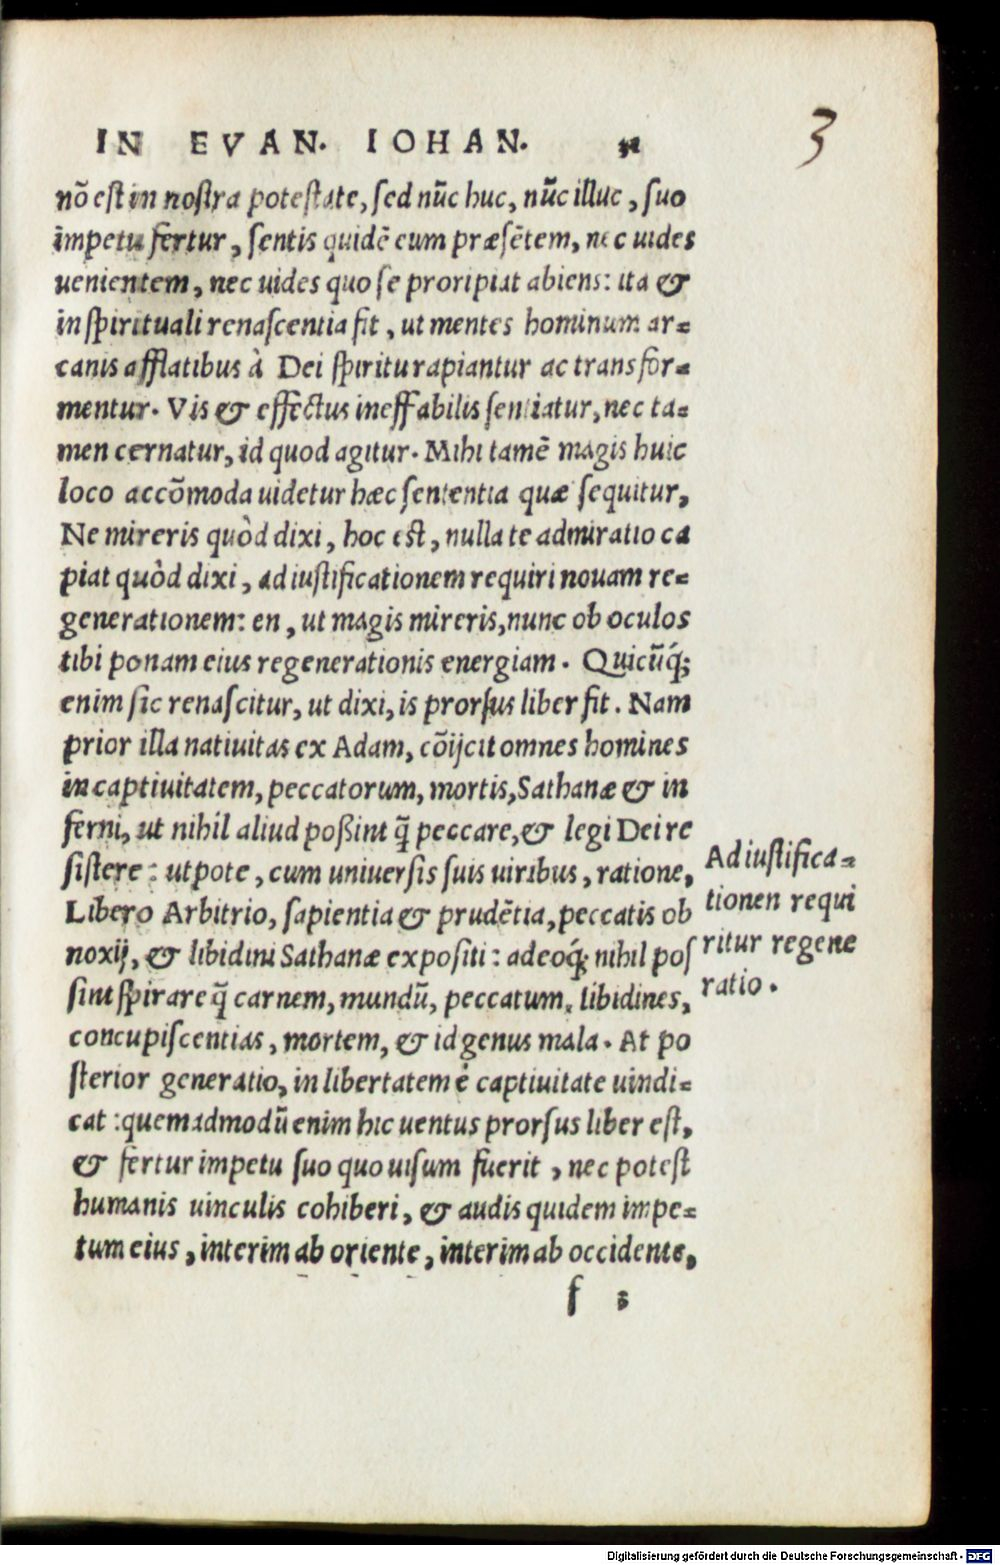 IN EVAN. IOHAN.
3
nō est in nostra potestate, sed nūc huc, nūc illuc, suo
impetu fertur, sentis quidē eum præsētem, nec uides
uenientem, nec uides quo se proripiat abiens: ita &
in spirituali renascentia fit, ut mentes hominum ar=
canis afflatibus à Dei spiritu rapiantur ac transfor=
mentur. Vis & effectus ineffabilis sentiatur, nec ta=
men cernatur, id quod agitur. Mihi tamē magis huic
loco accōmoda uidetur hæc sententia quæ sequitur,
Ne mireris quòd dixi, hoc est, nulla te admiratio ca
piat quòd dixi, ad iustificationem requiri nouam re=
generationem: en, ut magis mireris, nunc ob oculos
tibi ponam eius regenerationis energiam. Quicūq́;
enim sic renascitur, ut dixi, is prorsus liber fit. Nam
prior illa natiuitas ex Adam, cōijcit omnes homines
in captiuitatem, peccatorum, mortis, Sathanæ & in
ferni, ut nihil aliud poßint q̃ peccare, & legi Dei re
sistere: utpote, cum uniuersis suis uiribus, ratione,
Libero Arbitrio, sapientia & prudētia, peccatis ob
noxij, & libidini Sathanæ expositi: adeoq́; nihil pos
sint spirare q̃ carnem, mundū, peccatum, libidines,
concupiscentias, mortem, & id genus mala. At po
sterior generatio, in libertatem è captiuitate uindi=
cat: quemadmodū enim hic uentus prorsus liber est,
& fertur impetu suo quo uisum fuerit, nec potest
humanis uinculis cohiberi, & audis quidem impe=
tum eius, interim ab oriente, interim ab occidente,
Ad iustifica=
tionen requi
ritur regene
ratio.
f
Digitalisierung gefördert durch die Deutsche Forschungsgemeinschaft - DFG